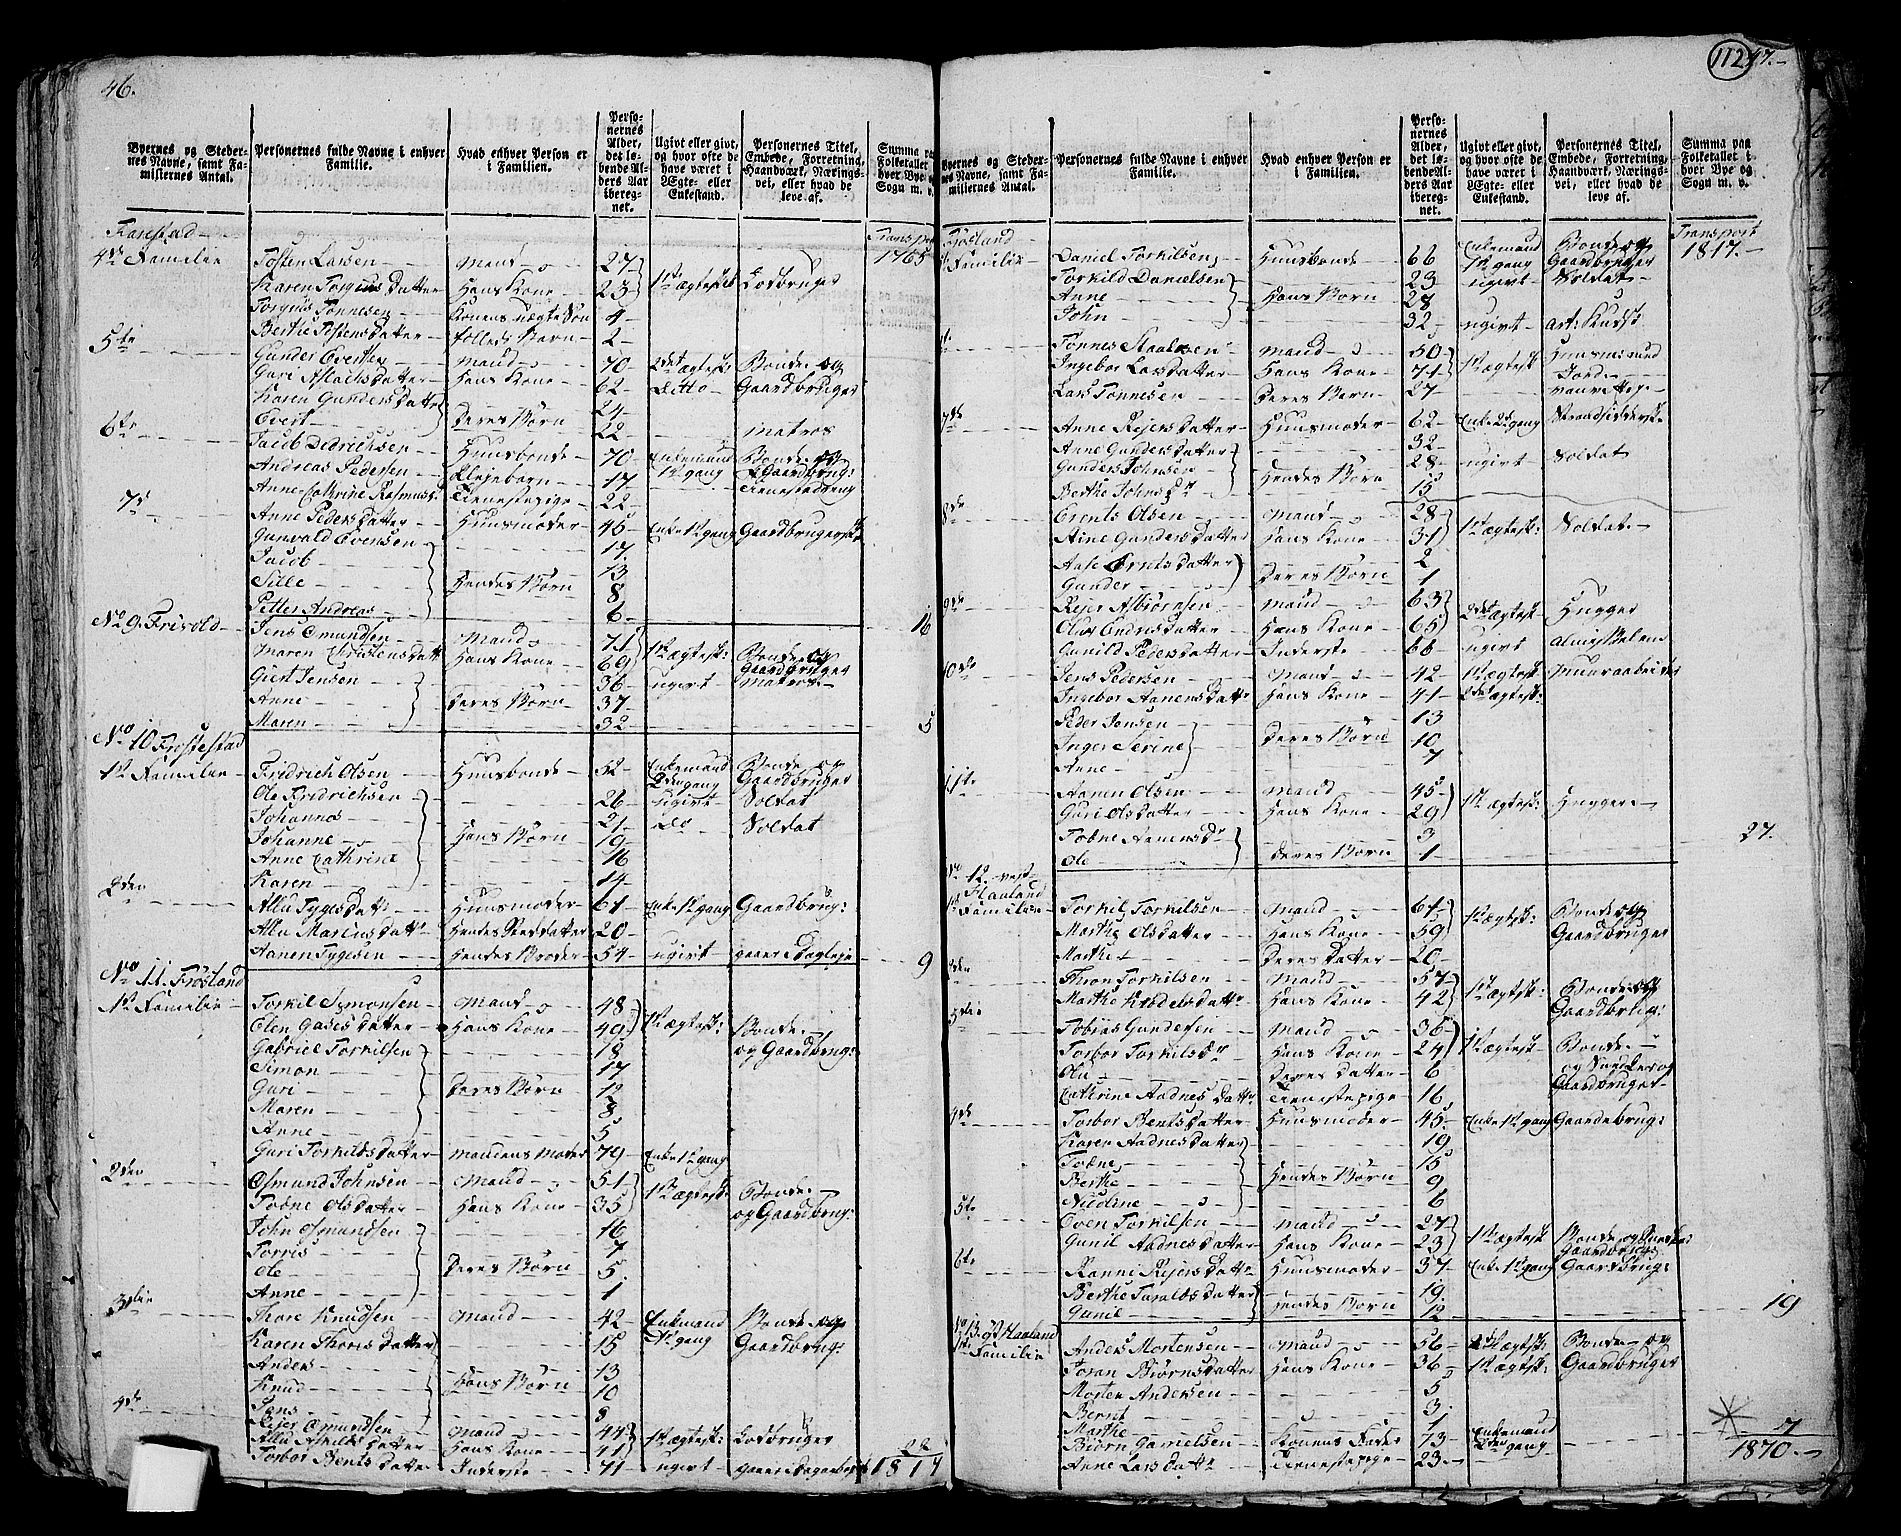 46.
Byernes og Stedernes Navne, samt Familiernes Antal.
Personernes fulde Navne i enhver Familie.
Hvad enhver Person er i Familien.
Personernes Alder, det løbende Alders Aar iberegnet.
Ugivt eller givt, og hvor ofte de have været i Ægte- eller Enkestand.
Personernes Titel, Embede, Forretning, Haandværk, Næringsvei, eller hvad de leve af.
Summa paa Folketallet i hver Bye og Sogn m. v.
Transport 1765
4de Familie Tosten Larsen Mand 27 1ste ægtesk Lodbruger
Karen Torgius Datter Hans Kone 23
Torgius Tønnesen Konens uægte Søn 4
Berthe Tostens Datter fælleds Barn 2
5te Gunder Evertsen Mand 70 2det ægtesk Bonde og
Guri Aslachs Datter Hans Kone 62 Ditto Gaardbruger
Karen Gunders Datter 24
Evert Deres Børn 22 Matros
6te Jacob Didrichsen Huusbonde 70 Enkemand Bonde og
Andreas Pedersen Plejebarn 17 1ste gang Gaardbrug:
Anne Cathrine Rasmus: Tienestepige 22
7de Anne Peders Datter Huusmoder 46 Enke 1ste gang Gaardbrugerske
Gunvald Evensen 17
Jacob 13
Sille Hendes Børn 8
Petter Andreas 6 16
No 9 Frivold Jens Omundsen Mand 71 1ste ægtesk: Bonde og
Maren Christens Datt Hans Kone 69 Gaardbruger
Giert Jensen 36 ugivt Matros
Anne Deres Børn 37
Maren 32 5
No 10 Frostestad
1ste Familie Fridrich Olsen Huusbonde 52 Enkemand Bonde og
2den gang Gaardbruger
Ole Fridrichsen 26 ugivt Soldat
Johannes 21 do Soldat
Johanne Hans Børn 19
Anne Cathrine 16
Karen 14
2den Allu Tyges Datt Huusmoder 61 Enke 1ste gang Gaardbrug:
Allu Marcus Datt Hendes Sterdatter 20
Aanen Tygesen Hendes Broder 54 ugivt gaaer i Dagleje 9
No 11. Frösland
1ste Familie Torkil Simonsen Mand 48 1ste ægtesk: Bonde
Elen Gases Datter Hans Kone 49 og Gaardbrug:
Gabriel Torkilsen 18
Simon 17
Guri Deres Børn 12
Maren 8
Anne 5
Guri Torkilds Datter Mandens Moder 79 Enke 1ste gang
2den Osmund Johnsen Mand 51 1ste ægtesk: Bonde
Tobne Ols Datter Hans Kone 35 og Gaardbrug:
John Osmundsen 16
Torris 7
Ole Deres Børn 5
Anne 1
3die Thore Knudsen Mand 42 Enkemand Bonde og
Karen Thores Datter 15 1ste gang Gaardbrug:
Anders 13
Knud Hans Børn 10
Jens 8
4de Rejer Omundsen Mand 44 1ste ægtesk: Lodbruger
Allu Askilds Datter Hans Kone 41
Torbor Bents Datter Inderste 71 ugivt 22
1817
112 47.
Byernes og Stedernes Navne, samt Familiernes Antal.
Personernes fulde Navne i enhver Familie.
Hvad enhver Person er i Familien.
Personernes Alder, det løbende Alders Aar iberegnet.
Ugivt eller givt, og hvor ofte de have været i Ægte- eller Enkestand.
Personernes Titel, Embede, Forretning, Haandværk, Næringsvei, eller hvad de leve af.
Summa paa Folketallet i hver Bye og Sogn m. v.
Frösland Transport 1817.
Familie Daniel Torkilsen Huusbonde 66 Enkemand Bonde og
1ste gang Gaardbruger
Torkild Danielsen 23 ugivt Soldat
Anne Hans Børn 28
John 32 ugivt
Tønnes Staalesen Mand 50 1ste ægtesk Huusmand
Ingebor Lars Datter Hans Kone 71 Jord
Lars Tønnesen Deres Barn 27
7de Anne Rejers Datter Huusmoder 62 Enke 2den gang
Anne Gunders Datter 32
Gunders Johnsen Hendes Børn 28 ugivt Soldat
Berthe Johns Dr 15
8de Erents Olsen Mand 28 1ste ægtesk: Soldat
Anne Gunders Datter Hans Kone 31
Aase Erents Datter Deres Børn 2
Gunder 1
9de Rejer Asbiørnsen Mand 63 2det ægtesk Huggen
Olur Endres Datter Hans Kone 65
Gunild Peders Datter Inderste 66 ugivt
10de Jens Pedersen Mand 42 1ste ægtesk: Muurarbeider
Ingebor Aanens Datter Hans Kone 41 2det ægtesk:
Peder Jensen 13
Inger Serine Deres Børn 10
Anne 7
11te Aanen Olsen Mand 45 1ste ægtesk: Huggere
Guri Ols Datter Hans Kone 29
Tobne Aanens Dr Deres Børn 3
Ole 1 27.
No 12. vest Haaland
1ste Familie Torkil Torkilsen Mand 61 1ste ægtesk: Bonde og
Marthe Ols Datter Hans Kone 59 Gaardbruger
Marthe Deres Datter 20
2den Thron Torkilsen Mand 57 1ste ægtesk: Bonde og
Marthe Hans Kone 42 Gaardbrug:
3die Tobias Gundersen Mand 36 1ste ægtesk Bonde
Torbor Torkils Dr Hans Kone 24 og Snedker og
Olu Deres Datter 6 Gaardbruger
Cathrine Aadnes Datter Tienestepige 16
4de Torbor Bents Datter Huusmoder 45 Enke 1ste gang Gaardbrug:
Karen Aadnes Datter 19
Tobne 15
Berthe Hendes Børn 9
Nicoline 6
5te Even Torkilsen Mand 27 1ste ægtesk Bonde og Snedker
Gunil Aadnes Datter Hans Kone 23 Gaardbrug:
6te Ranni Rejers Datter Huusmoder 37 Enke 1ste gang Gaardbrug:
Berthe Taralds Datter 19
Gunil Hendes Børn 12 19
No 13. Øst Haaland
1ste Familie Anders Mortensen Mand 56 2det ægtesk: Bonde og
Joran Biørns Datter Hans Kone 36 1ste ægtesk: Gaardbruger
Morten Andersen 5
Bernt 3
Marthe 1
Biørn Gamelsen Konens Fader 73 Enkemand 2den gang
Anne Lars Datter Tienestepige 23 7
1870